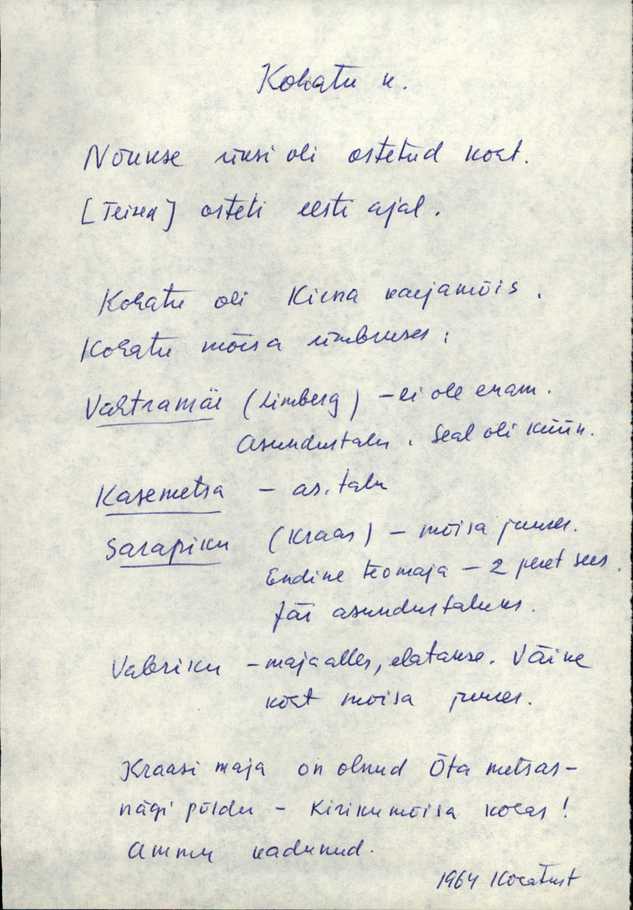 Kohatu k.
Nõukse üksi oli ostetud koht.
[Teised] osteti eesti ajal.
Kohatu oli Kiena karjamõis.
Kohatu mõisa ümbruses:
Vahtramäe (Limberg) – ei ole enam.
Asundustalu. Seal oli küün.
Kasemetsa – as. talu
Sarapiku (Kraas) – mõisa juures.
Endine teomaja – 2 peret sees.
Jäi asundustaluks.
Vabriku – maja alles, elatakse. Väike
koht mõisa juures.
Kraasi maja on olnud Õta metsas –
nägi põldu – Kirikumõisa kohas!
Ammu kadunud.
1964 Kohatust